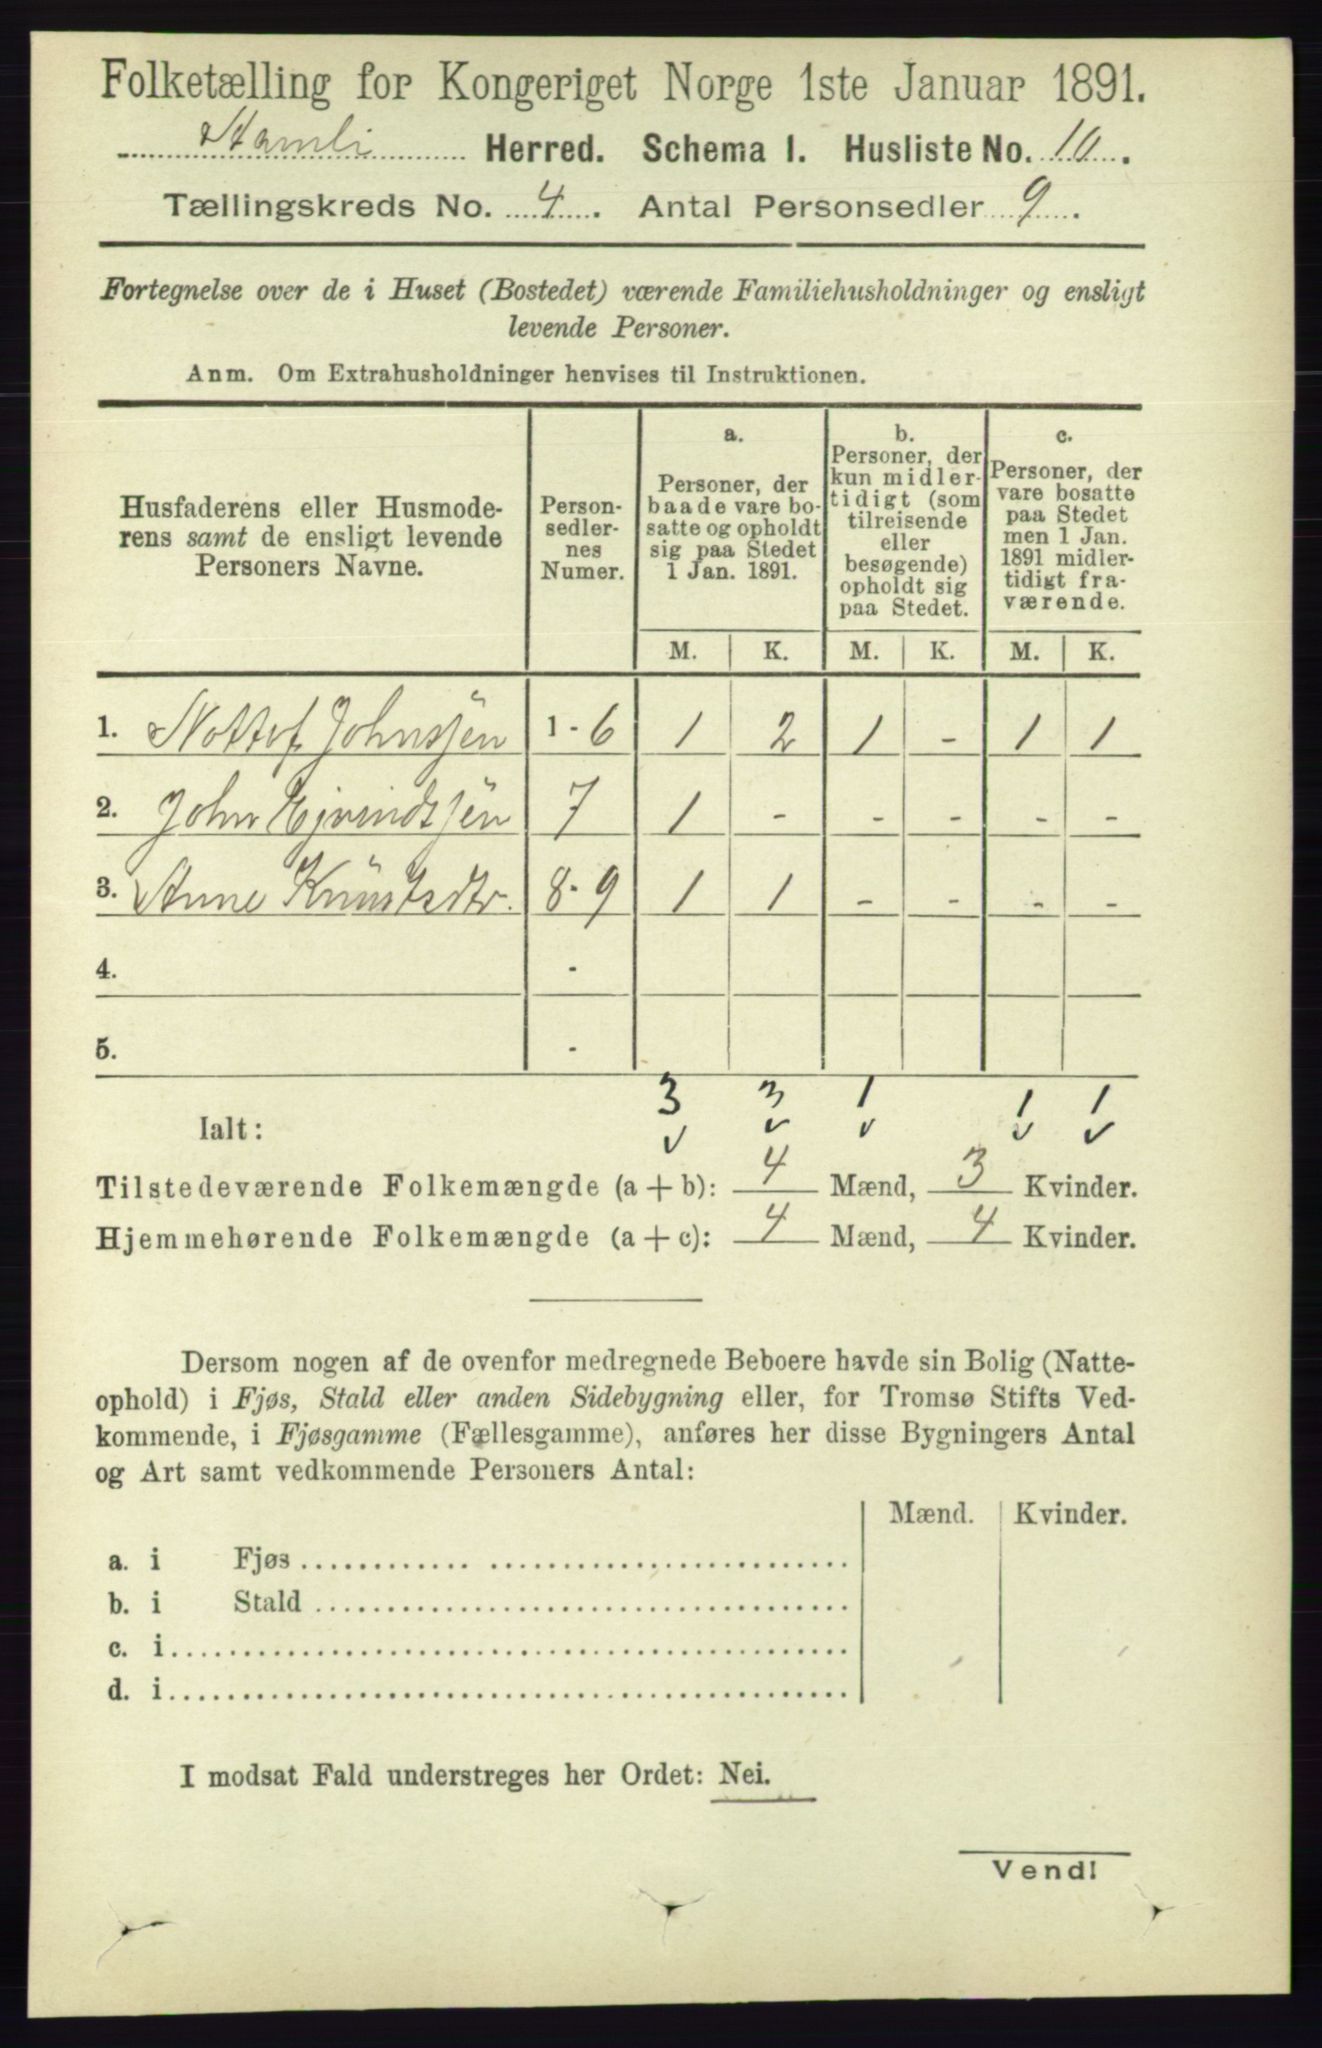 Folketælling for Kongeriget Norge 1ste Januar 1891.
Herred. Schema I. Husliste No. 10.
Tællingskreds No. 4. Antal Personsedler 9.
Fortegnelse over de i Huset (Bostedet) værende Familiehusholdninger og ensligt
levende Personer.
Anm. Om Extrahusholdninger henvises til Instruktionen.
Husfaderens eller Husmode-
rens samt de ensligt levende
Personers Navne.
Person-
sedler-
nes
Numer.
a.
Personer, der
baade vare bo-
satte og opholdt
sig paa Stedet
1 Jan. 1891.
b.
Personer, der
kun midler-
tidigt (som
tilreisende
eller
besøgende)
opholdt sig
paa Stedet.
c.
Personer, der
vare bosatte
paa Stedet
men 1 Jan.
1891 midler-
tidigt fra-
værende.
M. K. M. K. M. K.
1. Johnsen 1 - 6 1 2 1 - 1 1
2. John Ejvindsen 7 1 - - - - -
3. Anne 8 - 9 1 1 - - - -
4. -
5. -
Ialt: 3 3 1 1 1
Tilstedeværende Folkemængde (a + b): 4 Mænd, 3 Kvinder.
Hjemmehørende Folkemængde (a + c): 4 Mænd, 4 Kvinder.
Dersom nogen af de ovenfor medregnede Beboere havde sin Bolig (Natte-
ophold) i Fjøs, Stald eller anden Sidebygning eller, for Tromsø Stifts Ved-
kommende, i Fjøsgamme (Fællesgamme), anføres her disse Bygningers Antal
og Art samt vedkommende Personers Antal:
Mænd. Kvinder.
a. i Fjøs
b. i Stald
c. i
d. i
I modsat Fald understreges her Ordet: Nei.
Vend!